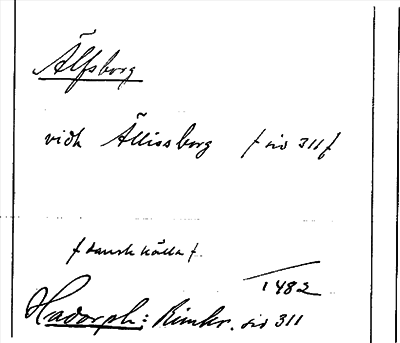 Älfsborg
vidh Ällissborg f sid 311 f
f dansk källa f.
1482
Hadorph: Rimkr. sid 311